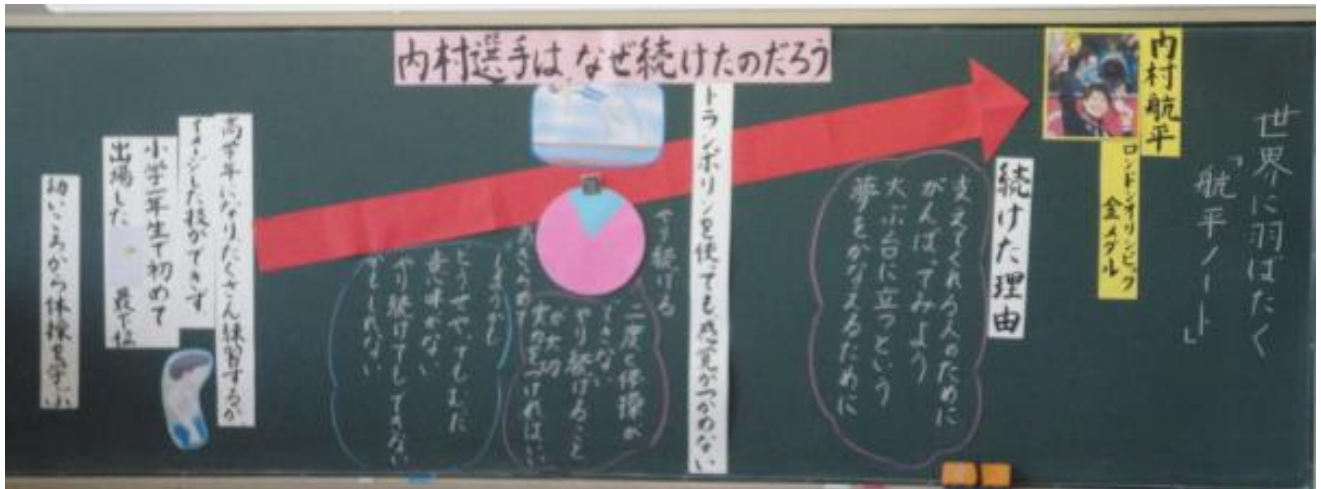 世界に羽ばたく
「航平ノート」
内村航平
ロンドンオリンピック
金メダル
内村選手は なぜ続けたのだろう
続けた理由
支えてくれる人のために
がんばってみよう
大ぶ台に立つという
夢をかなえるために
トランポリンを使っても感覚がつかめない
やり続ける
二度と体操が
できない
やり続けること
が大切
あきらめて
しまうかも
どうせやってもむだ
意味がない
やり続けてもできない
かもしれない
高学年になりたくさん練習するが
イメージした技ができず
小学一年生で初めて
出場した
最下位
幼いころから体操を学ぶ